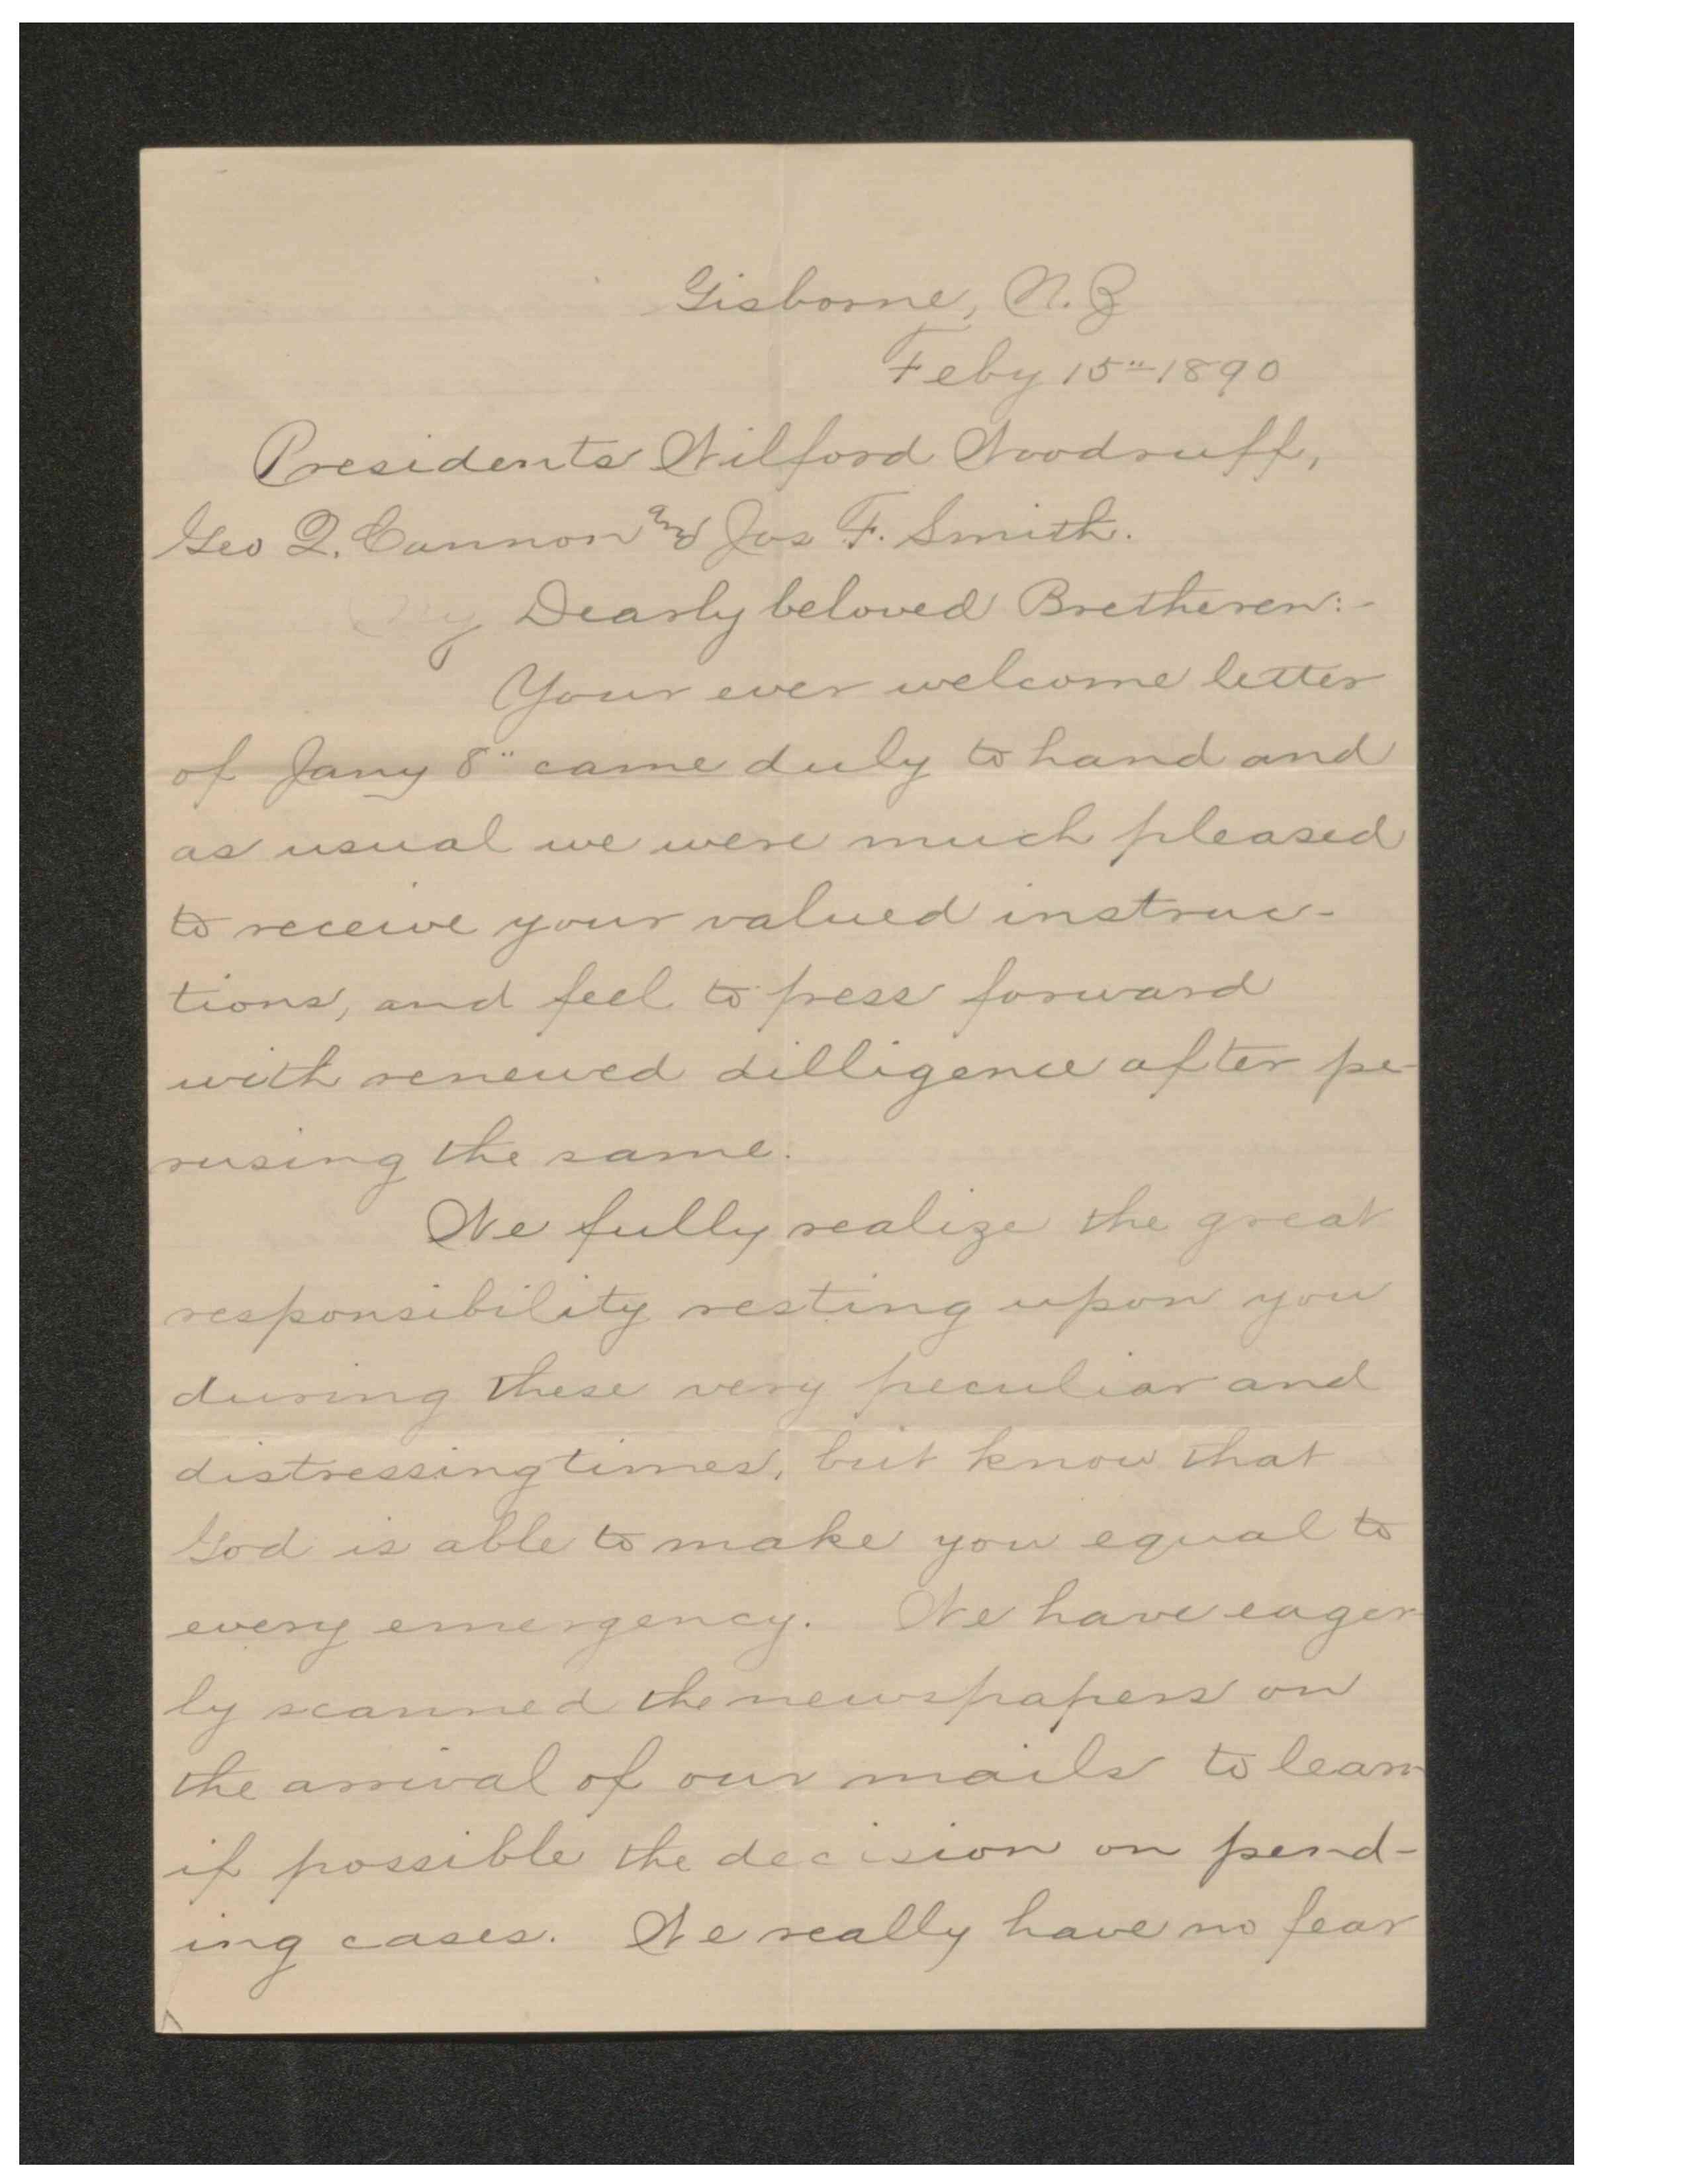 Gisborne, N.Z
Feby 15"-1890
Presidents Wilford Woodruff,
Geo Q. Cannon and Jos F. Smith.
My Dearly beloved Bretheren:-
Your ever welcome letter
of Jany 8" came duly to hand and
as usual we were much pleased
to receive your valued instruc-
tions, and feel to press forward
with renewed dilligence after pe-
rusing the same.
We fully realize the great
responsibility resting upon you
during these very peculiar and
distressing times, but know that
God is able to make you equal to
every emergency. We have eager-
ly scanned the newspapers on
the arrival of our mails to learn
if possible the decision on pend-
ing cases. We really have no fear